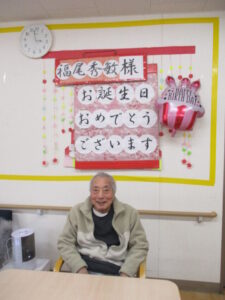 福尾秀敏様
お誕生日
おめでとう
ございます
HAPPY
BIRTHDAY